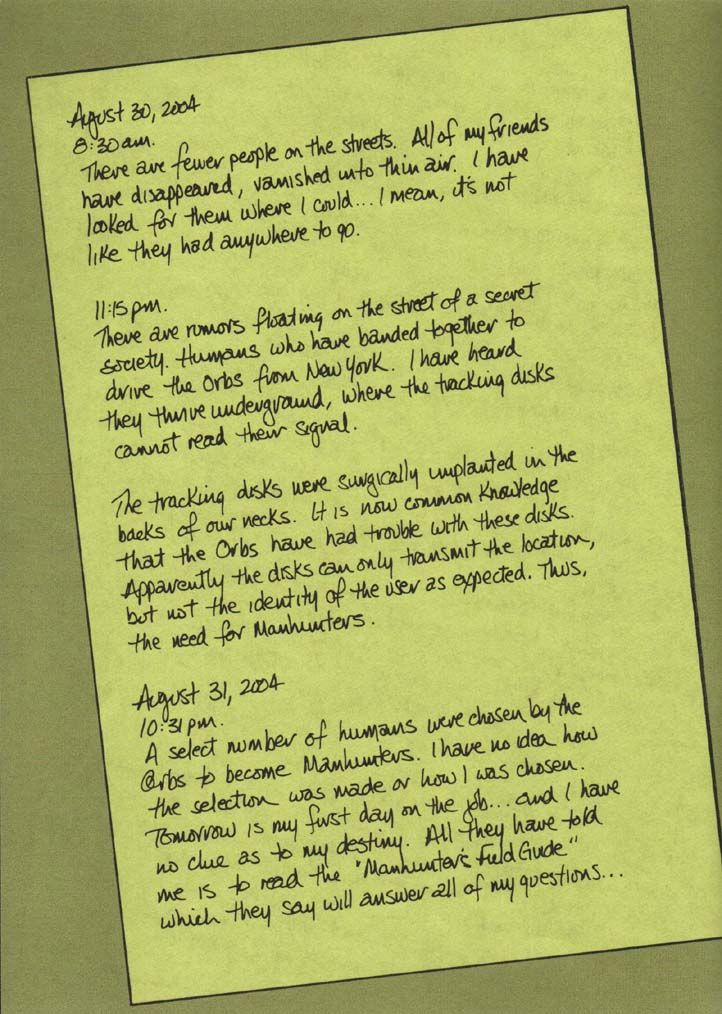 August 30, 2004
8:30am.
There are fewer people on the streets. All of my friends
have disappeared, vanished into thin air. I have
looked for them where I could... I mean, it's not
like they had anywhere to go.
11:15pm.
There are rumors floating on the street of a secret
society. Humans who have banded together to
drive the Orbs from New York. I have heard
they thrive underground, where the tracking disks
cannot read their signal.
The tracking disks were surgically implanted in the
backs of our necks. It is now common knowledge
that the Orbs have had trouble with these disks.
Apparently the disks can only transmit the location,
but not the identity of the user as expected. Thus,
the need for Manhunters.
August 31, 2004
10:31pm.
A select number of humans were chosen by the
Orbs to become Manhunters. I have no idea how
the selection was made or how I was chosen.
Tomorrow is my first day on the job... and I have
no clue as to my destiny. All they have told
me is to read the "Manhunter's Field Guide"
which they say will answer all of my questions...